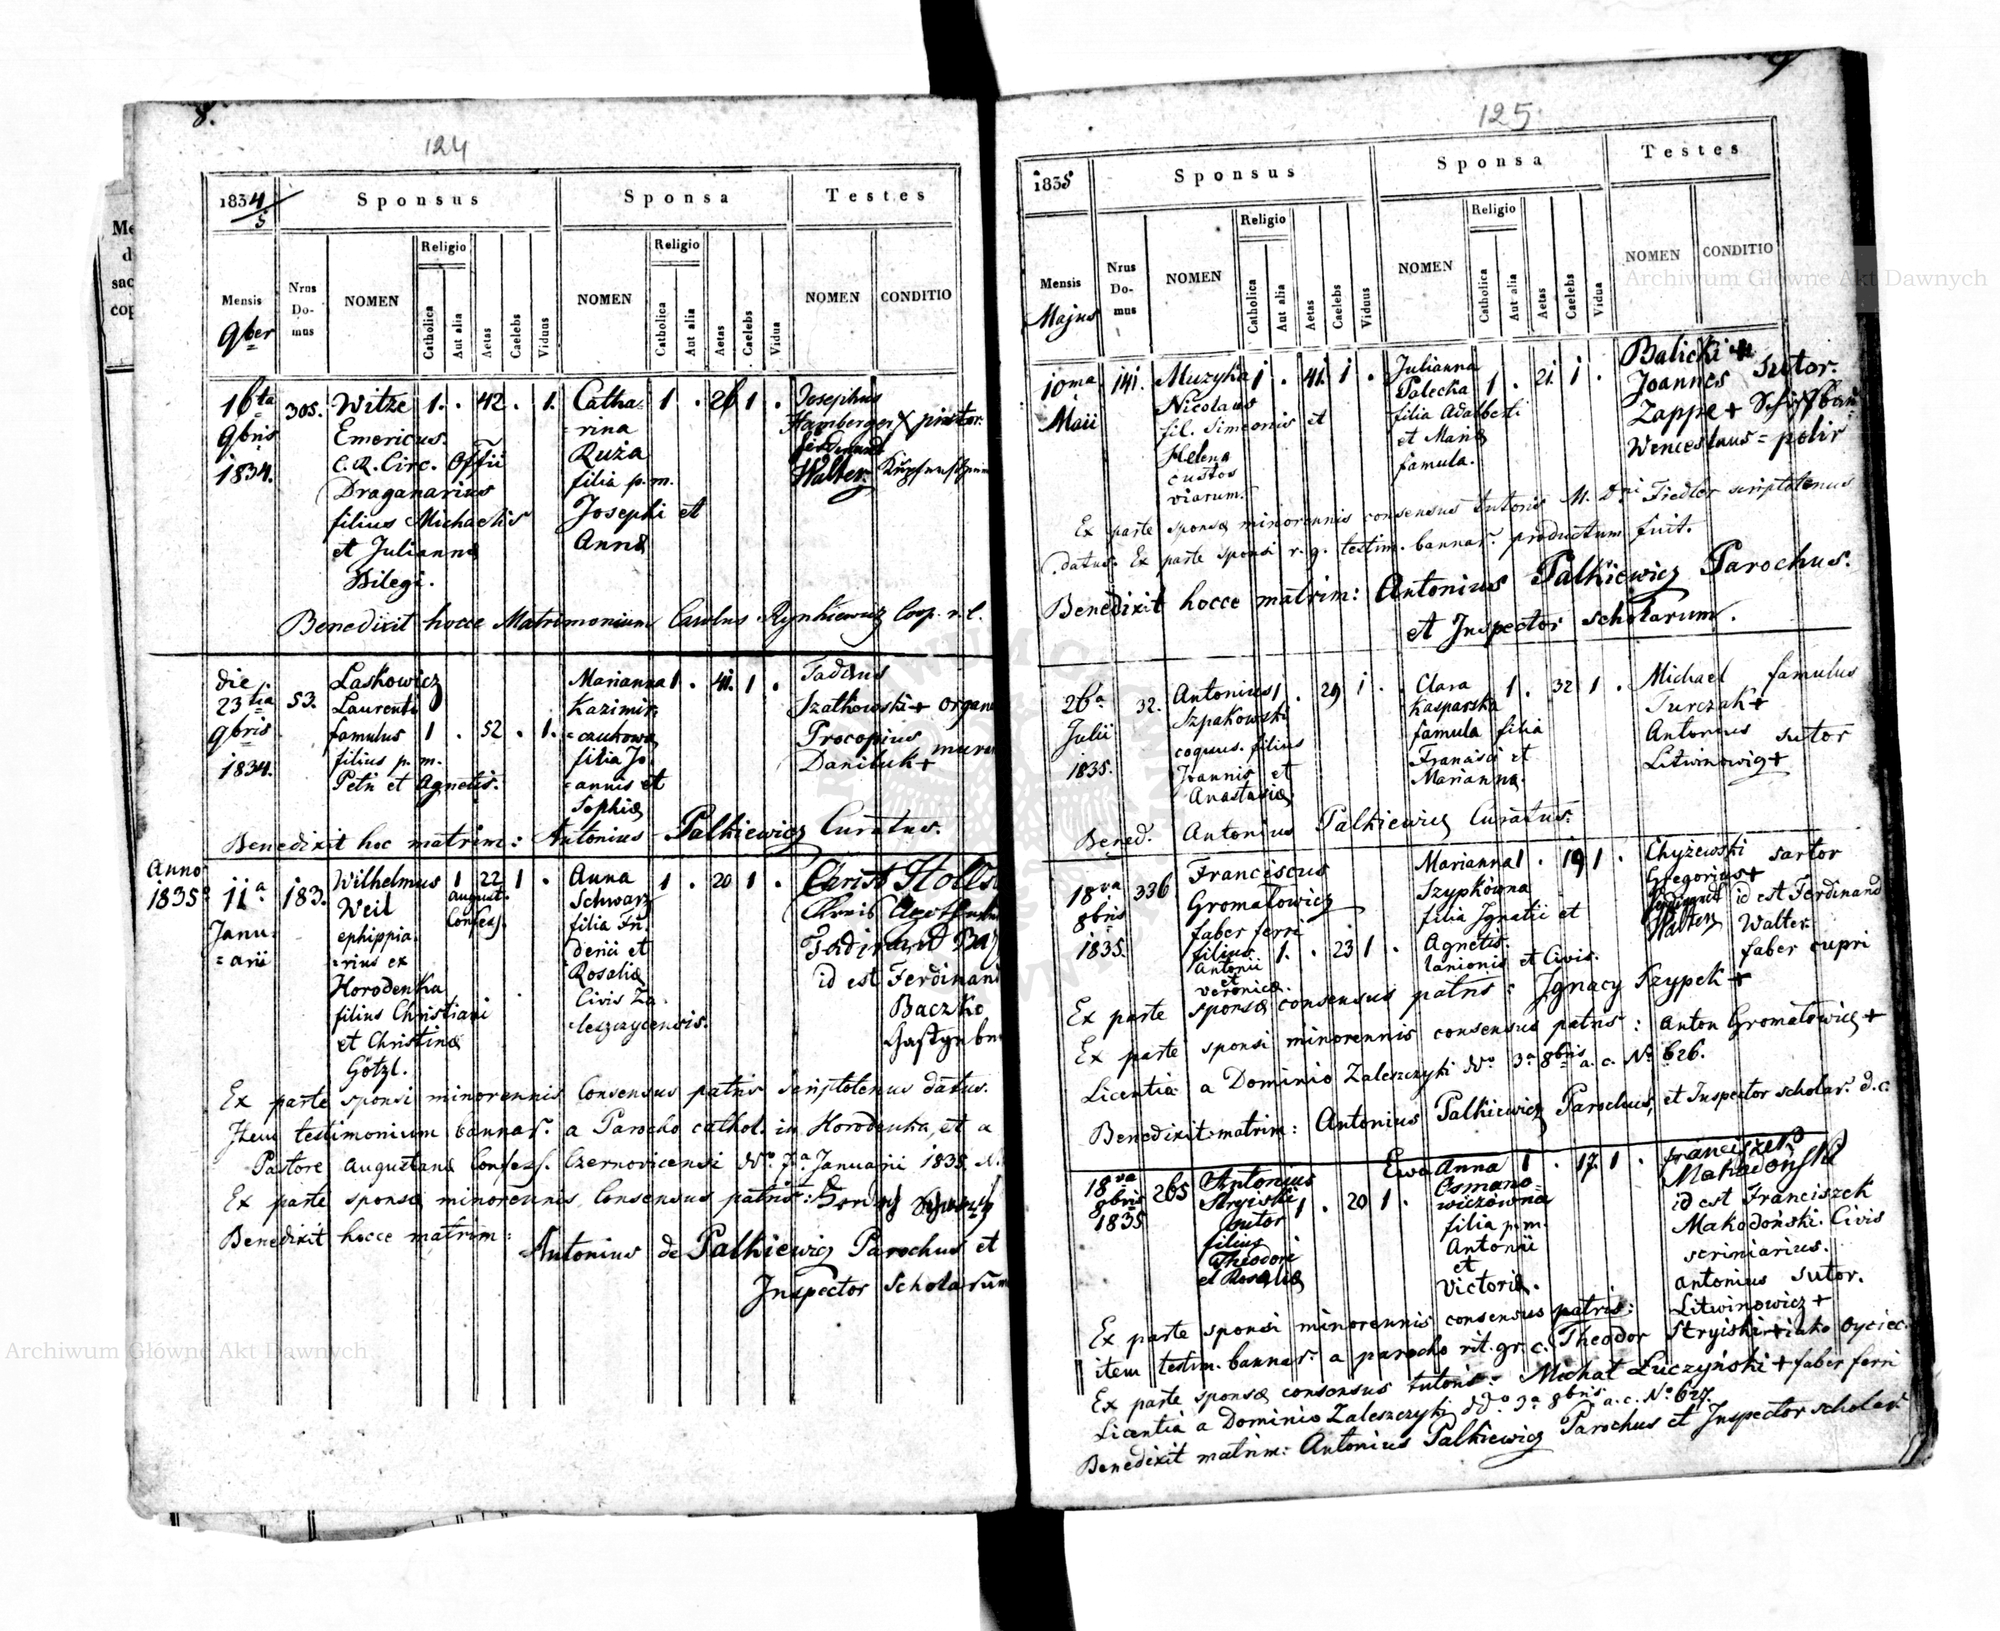 8.
124
1834/5
Sponsus
Sponsa
Testes
Mensis
9ber
Nrus Do-mus
NOMEN
Religio
Catholica
Aut alia
Aetas
Caelebs
Viduus
NOMEN
Religio
Catholica
Aut alia
Aetas
Caelebs
Vidua
NOMEN
CONDITIO
16ta 9bris 1834.
305.
Witze
Emericus
C. R. Circ. Offii
Draganarius
filius Michaelis
et Julianna
Dilegi.
1. . 42 . 1.
Catha-
=rina
Ruża
filia p. m.
Josephi et
Anna
1 . 26 1 .
Josephus
Hamberger X pictor.
Ferdinand
Walter.
Benedixit hocce Matrimonium Carolus Rynkiewicz Coop. r. l.
die 23tia 9bris 1834.
53.
Laskowicz
Laurenti
famulus
filius p. m.
Petri et Agnetis.
1 . 52 . 1.
Marianna
Kazimir-
=czukowa
filia Jo-
=annis et
Sophia
1 . 41. 1 .
Taddeus
Szatkowski + organ
Procopius
Daniluk + murar
Benedixit hoc matrim: Antonius Palkiewicz Curatus.
Anno 1835
11a Janu-
=arii
183.
Wilhelmus
Weil
ephippia-
=rius ex
Horodenka
filius Christiani
et Christina
Götzl.
1 22 1 .
August.
Confess.
Anna
Schwarz
filia Fri-
derici et
Rosalia
Civis Za-
leszczycensis.
1 . 20 1 .
id est Ferdinand
Baczko
Ex parte sponsi minorennis Consensus patris scriptotenus datus.
Item testimonium bannar. a Parocho cathol. in Horodenka, et a
Pastore Augustana Confess. Czernovicensi ddo 7a Januarii 1835. N.
Ex parte sponsa minorennis Consensus patris:
Benedixit hocce matrim:
Antonius de Palkiewicz Parochus et
Inspector Scholarum
9
125
1835
Sponsus
Sponsa
Testes
Mensis
Majus
Nrus Do-mus
NOMEN
Religio
Catholica
Aut alia
Aetas
Caelebs
Viduus
NOMEN
Religio
Catholica
Aut alia
Aetas
Caelebs
Vidua
NOMEN
CONDITIO
10ma Maii
141.
Muzyka
Nicolaus
fil. Simeonis et
Helena
custos
viarum.
1 . 41. 1 .
Julianna
Palecka
filia Adalberti
et Maria
famula.
1 . 21. 1 .
Balicki +
Joannes Sutor.
Zappe +
Wenceslaus = polir
Ex parte sponsa minorennis consensus tutoris M. Dni Fiedler scriptotenus
datus. Ex parte sponsi r. g. testim. bannar. productum fuit.
Benedixit hocce matrim: Antonius Palkiewicz Parochus.
et Inspector scholarum.
26a Julii 1835.
32.
Antonius
Szpakowski
coquus. filius
Joannis et
Anastasia
1 . 29 1 .
Clara
Kasparska
famula filia
Francisci et
Marianna.
1 . 32 1 .
Michael famulus
Turczak +
Antonius sutor
Litwinowicz +
Bened. Antonius Palkiewicz Curatus.
18va 8bris 1835.
336
Franciscus
Gromatowicz
faber ferri
filius
Antonii
et
Veronica.
1. . 23 1 .
Marianna
Szypkówna
filia Ignatii et
Agnetis.
lanionis et Civis.
1 . 19 1 .
Chyżewski sartor
Gregorius +
id est Ferdinand
Walter
faber cupri
Ex parte sponsa consensus patris: Jgnacy Szypek +
Ex parte sponsi minorennis consensus patris: Anton Gromatowicz +
Licentia a Dominio Zaleszczyki ddo 3a 8bris a. c. No 626.
Benedixit matrim: Antonius Palkiewicz Parochus, et Inspector scholar. d. c.
18va 8bris 1835
265
Antonius
Stryiski
sutor
filius
Theodori
et Rosalia
1 . 20 1 .
Ewa Anna
Osmano-
wiczówna
filia p. m.
Antonii
et
Victoria.
1 . 17. 1 .
Franciszek
Makodoński
id est Franciszek
Makodoński. Civis
scriniarius.
antonius sutor.
Litwinowicz +
Ex parte sponsi minorennis consensus patris:
item testim. bannar. a parocho rit. gr. c. Theodor Stryiski + iako oyciec.
Ex parte sponsa consensus tutoris: Michał Łuczyński + faber ferri
Licentia a Dominio Zaleszczyki ddo 3a 8bris a. c. No 627.
Benedixit matrim: Antonius Palkiewicz Parochus et Inspector scholar.
Archiwum Główne Akt Dawnych
Archiwum Główne Akt Dawnych